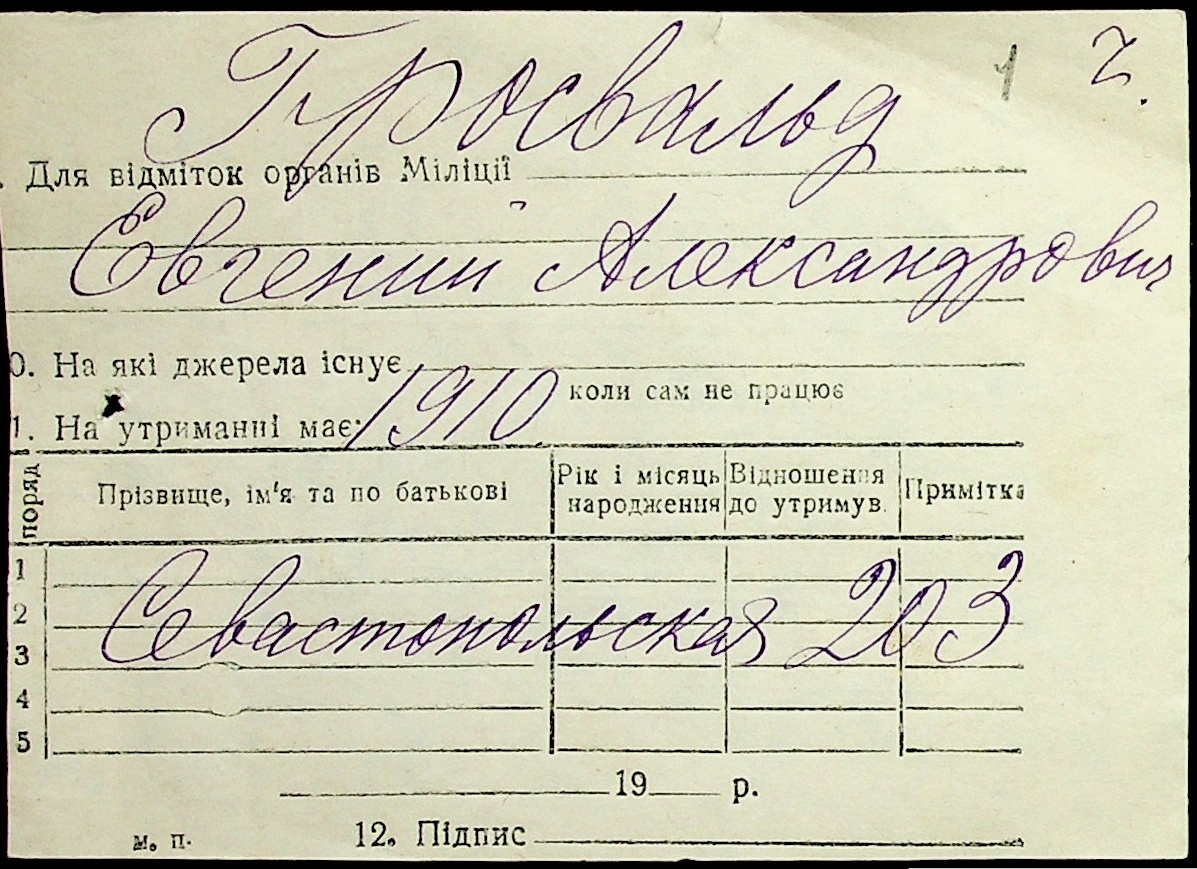 1 2.
Гросвальд
. Для відміток органів Міліції
Евгений Александрович
0. На які джерела існує
коли сам не працює
1. На утриманні має: 1910
поряд Прізвище, ім'я та по батькові Рік і місяць народження Відношення до утримув. Примітка
1
2 Севастопольская 203
3
4
5
19 р.
м. п. 12. Підпис